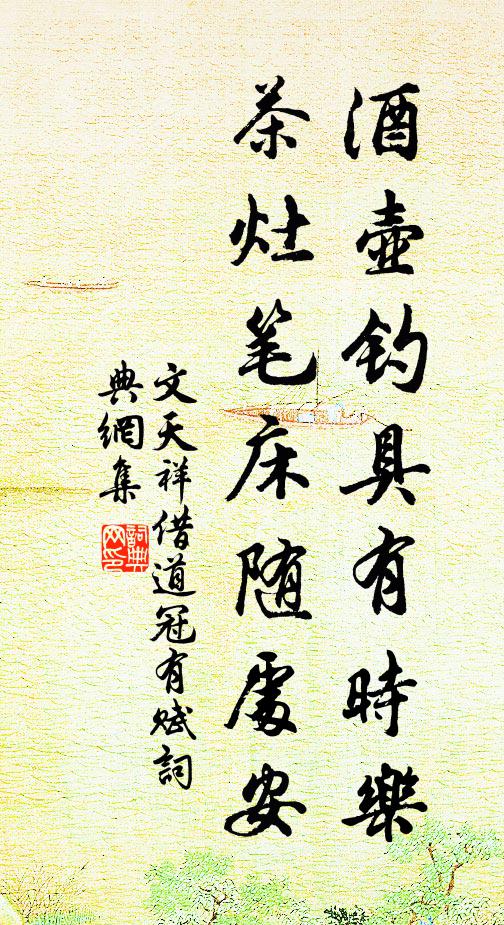 酒壺釣具有時樂
茶灶笔床随處安
文天祥借道冠有赋詞
典網集
詞典
网印